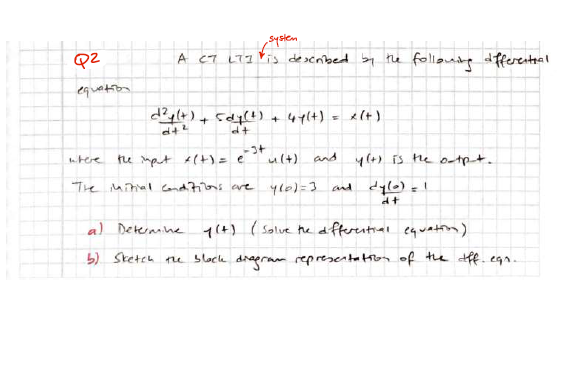 system
Q2 A CT LTI is described by the following differential
equation
d²y(t)/dt² + 5dy(t)/dt + 4y(t) = x(t)
where the input x(t) = e^-3t u(t) and y(t) is the output.
The initial conditions are y(0)=3 and dy(0)/dt = 1
a) Determine y(t) (solve the differential equation)
b) Sketch the block diagram representation of the diff. eqn.